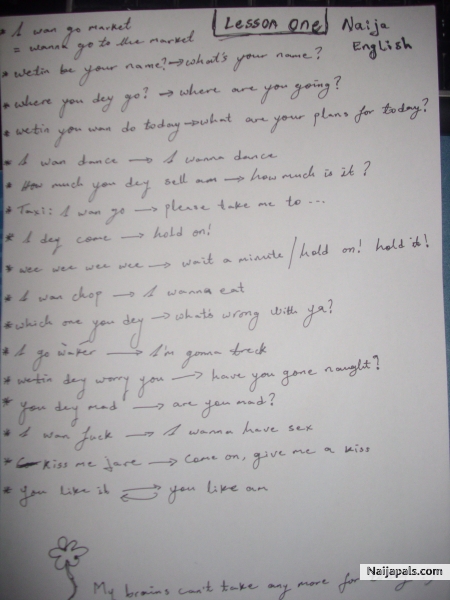 Lesson One Naija
English
* I wan go market
= wanna go to the market
* wetin be your name? → what's your name?
* where you dey go? → where are you going?
* wetin you wan do today → what are your plans for today?
* I wan dance → I wanna dance
* How much you dey sell am → how much is it?
* Taxi: I wan go → please take me to ...
* I dey come → hold on!
* wee wee wee wee → wait a minute / hold on! hold it!
* I wan chop → I wanna eat
* which one you dey → what's wrong with ya?
* I go waker → I'm gonna
* wetin dey worry you → have you gone naught?
* you dey mad → are you mad?
* I wan fuck → I wanna have sex
* kiss me jare → come on, give me a kiss
* you like it ⇄ you like am
My brains can't take any more for
Naijapals.com